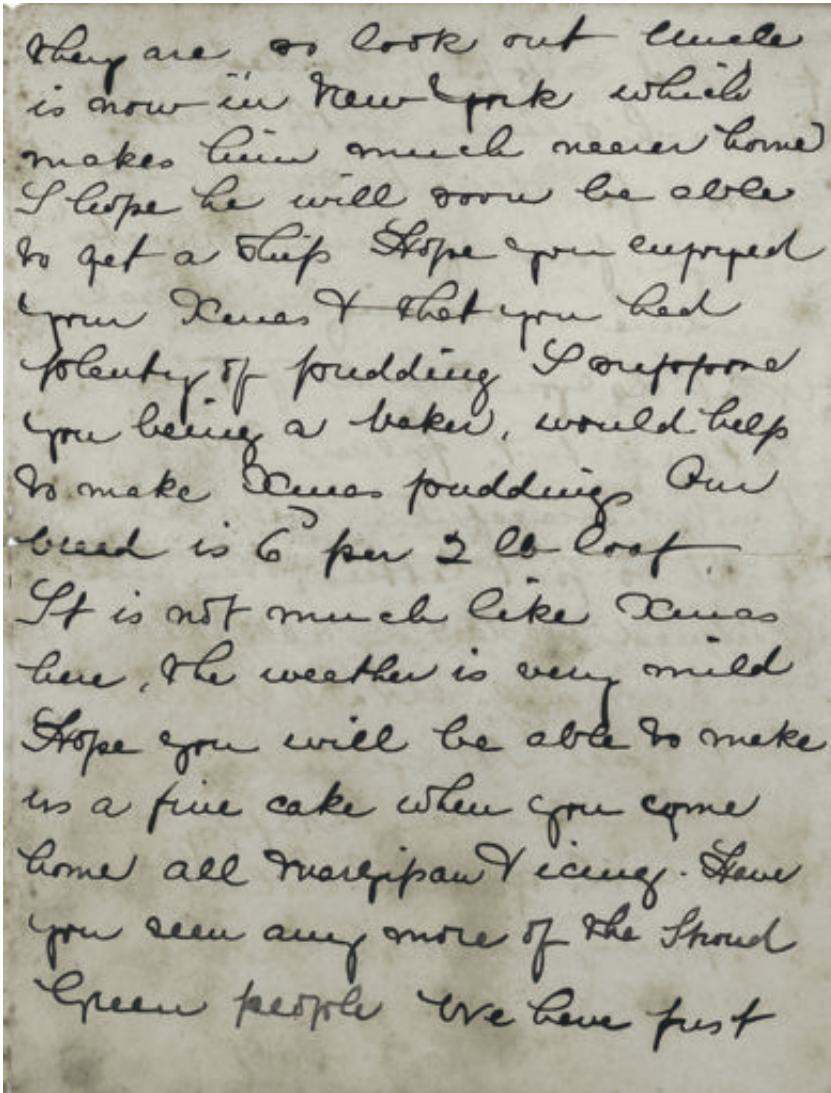 they are so look out Uncle
is now in New York which
makes him much nearer home
I hope he will soon be able
to get a ship Hope you enjoyed
your Xmas & that you had
plenty of pudding I suppose
you being a baker, would help
to make Xmas puddings Our
bread is 6D per 2 lb loaf
It is not much like Xmas
here, the weather is very mild
Hope you will be able to make
us a fine cake when you come
home all marzipan & icing. Have
you seen any more of the Stroud
Green people We have just